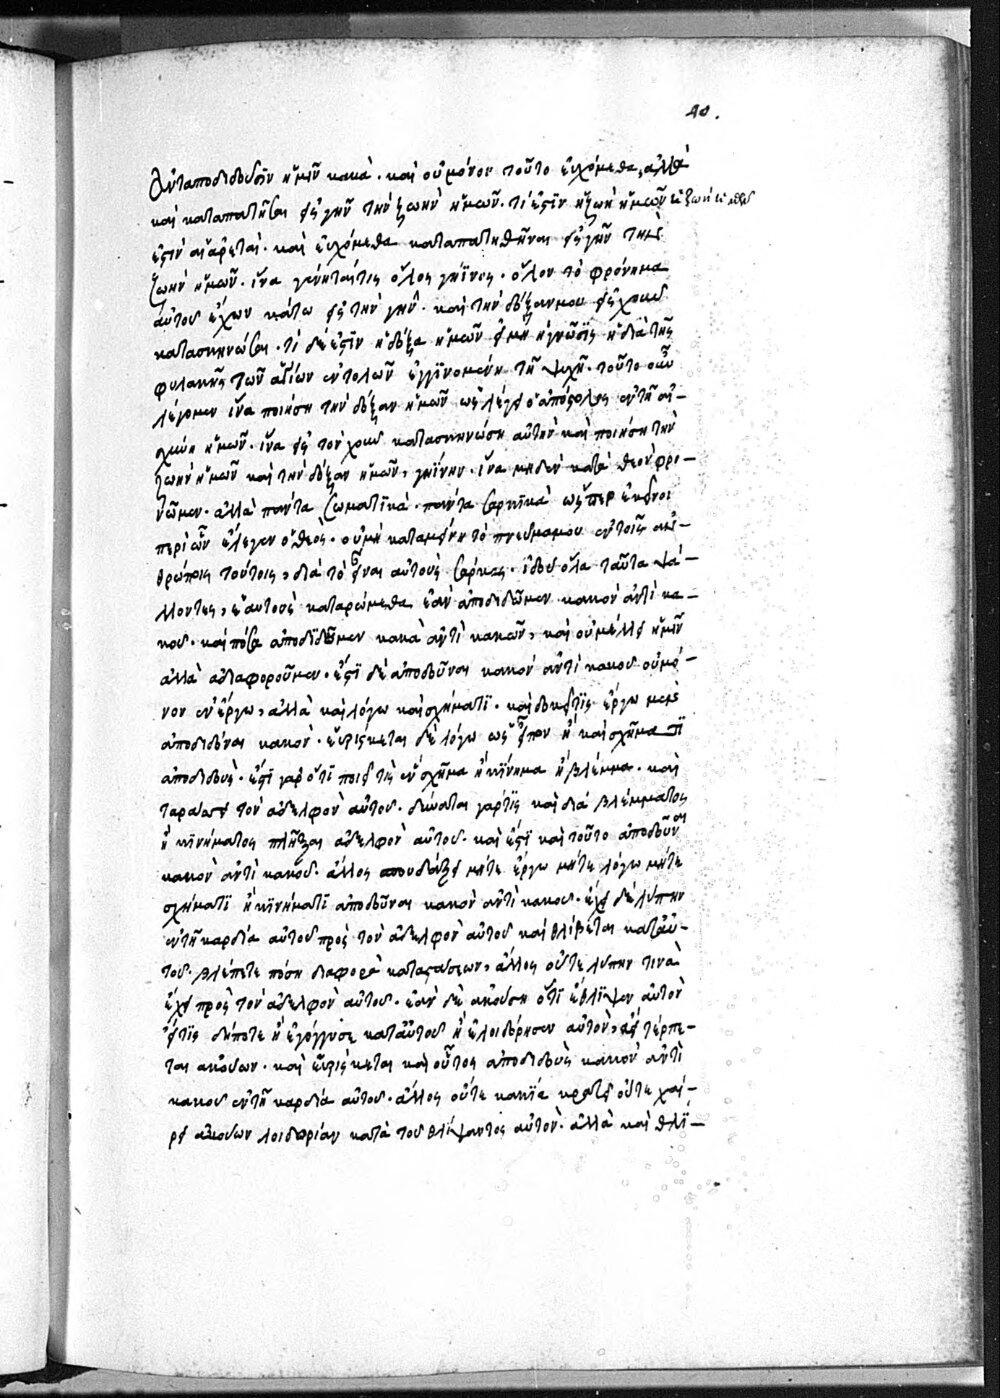 40.
ἀνταποδιδοῦσιν ἡμῖν κακὰ. καὶ οὐ μόνον τοῦτο εὐχόμεθα, ἀλλὰ
καὶ καταπατῆσαι εἰς γῆν τὴν ζωὴν ἡμῶν. τί ἐστιν ἡ ζωὴ ἡμῶν
ἐστιν αἱ ἀρεταὶ. καὶ εὐχόμεθα καταπατηθῆναι εἰς γῆν τὴν
ζωὴν ἡμῶν. ἵνα γένηταί τις ὅλος γήϊνος. ὅλον τὸ φρόνημα
αὐτοῦ ἔχων κάτω εἰς τὴν γῆν. καὶ τὴν δόξαν μου εἰς χοῦν
κατασκηνῶσαι. τί δέ ἐστιν ἡ δόξα ἡμῶν εἰ μὴ ἡ γνῶσις ἡ διὰ τῆς
φυλακῆς τῶν ἁγίων ἐντολῶν ἐγγινομένη τῇ ψυχῇ. τοῦτο οὖν
λέγομεν ἵνα ποιήσῃ τὴν δόξαν ἡμῶν ὡς λέγει ὁ ἀπόστολος ἐν τῇ αἰ-
σχύνῃ ἡμῶν. ἵνα εἰς τὸν χοῦν κατασκηνώσῃ αὐτὴν καὶ ποιήσῃ τὴν
ζωὴν ἡμῶν καὶ τὴν δόξαν ἡμῶν, γηίνην. ἵνα μηδὲν κατὰ θεὸν φρο-
νῶμεν. ἀλλὰ πάντα σωματικὰ. πάντα σαρκικὰ ὥσπερ ἐκεῖνοι
περὶ ὧν ἔλεγεν ὁ θεὸς. οὐ μὴ καταμείνῃ τὸ πνεῦμα μου ἐν τοῖς ἀν-
θρώποις τούτοις, διὰ τὸ εἶναι αὐτοὺς σάρκας. ἰδοὺ ὅλα ταῦτα ψά-
λλοντες, ἑαυτοὺς καταρώμεθα ἐὰν ἀποδιδῶμεν κακὸν ἀντὶ κα-
κοῦ. καὶ πόσα ἀποδιδῶμεν κακὰ ἀντὶ κακῶν, καὶ οὐ μέλει ἡμῖν
ἀλλὰ ἀδιαφοροῦμεν. ἔστι δὲ ἀποδοῦναι κακὸν ἀντὶ κακοῦ οὐ μό-
νον ἐν ἔργῳ, ἀλλὰ καὶ λόγῳ καὶ σχήματι. καὶ δοκεῖ τις ἔργῳ μὴ
ἀποδιδόναι κακὸν. εὑρίσκεται δὲ λόγῳ ὡς εἶπον ἢ καὶ σχήματι
ἀποδιδοὺς. ἔστι γὰρ ὅτι ποιεῖ τις ἓν σχῆμα ἢ κίνημα ἢ βλέμμα. καὶ
ταράσσει τὸν ἀδελφὸν αὐτοῦ. δύναται γάρ τις καὶ διὰ βλέμματος
ἢ κινήματος πλῆξαι ἀδελφὸν αὐτοῦ. καὶ ἔστι καὶ τοῦτο ἀποδοῦναι
κακὸν ἀντὶ κακοῦ. ἄλλος σπουδάζει μήτε ἔργῳ μήτε λόγῳ μήτε
σχήματι ἢ κινήματι ἀποδοῦναι κακὸν ἀντὶ κακοῦ. ἔχει δὲ λύπην
ἐν τῇ καρδίᾳ αὐτοῦ πρὸς τὸν ἀδελφὸν αὐτοῦ καὶ θλίβεται κατ' αὐ-
τοῦ. βλέπετε πόση διαφορὰ καταστάσεων, ἄλλος οὔτε λύπην τινὰ
ἔχει πρὸς τὸν ἀδελφὸν αὐτοῦ. ἐὰν δὲ ἀκούσῃ ὅτι ἔθλιψεν αὐτὸν
τις δήποτε ἢ ἐγόγγυσε κατ' αὐτοῦ ἢ ἐλοιδόρησεν αὐτὸν, τέρπε-
ται ἀκούων. καὶ εὑρίσκεται καὶ οὗτος ἀποδιδοὺς κακὸν ἀντὶ
κακοῦ ἐν τῇ καρδίᾳ αὐτοῦ. ἄλλος οὔτε κακία κρατεῖ οὔτε χαί-
ρει ἀκούων λοιδορίαν κατὰ τοῦ θλίψαντος αὐτὸν. ἀλλὰ καὶ θλί-